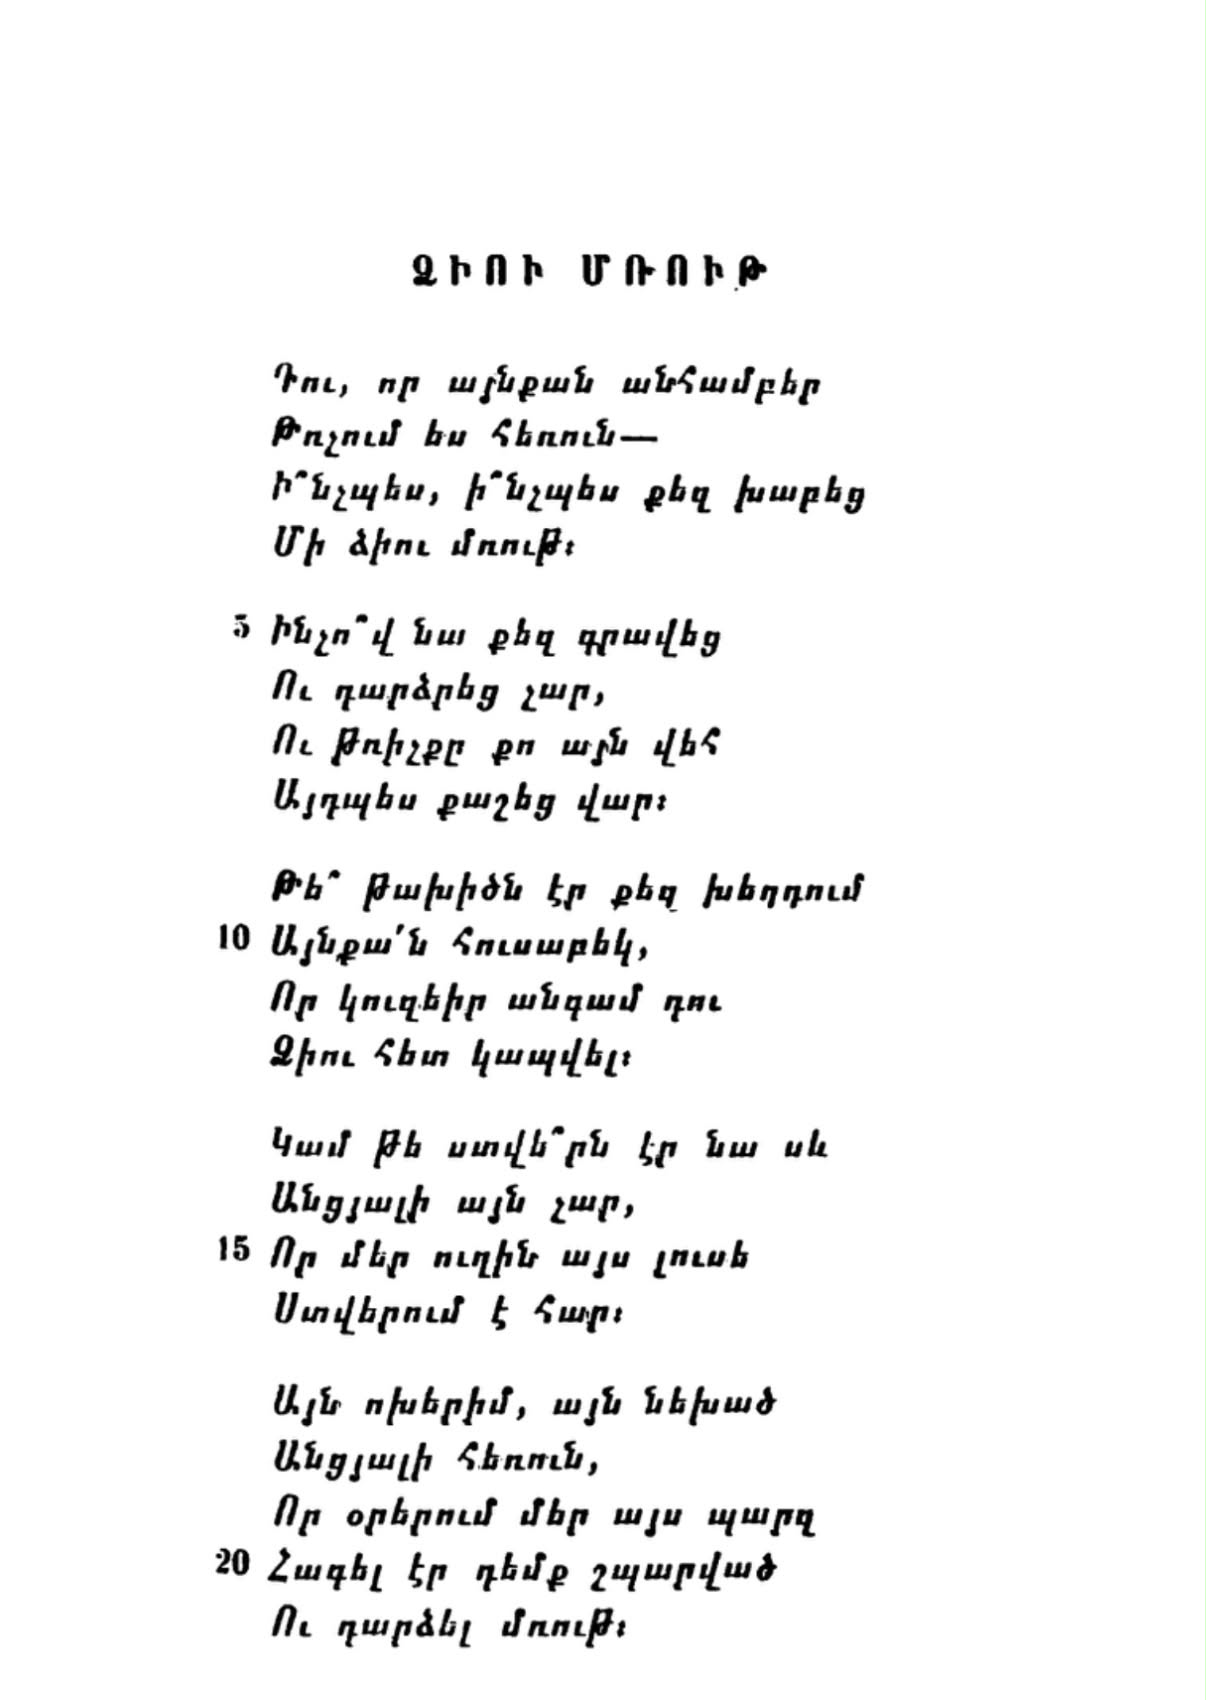 ՁԻՈՒ ՄՌՈՒԹ
Դու, որ այնքան անհամբեր
Թռչում ես հեռուն—
Ի՞նչպես, ի՞նչպես քեզ խաբեց
Մի ձիու մռութ։
5 Ինչո՞վ նա քեզ գրավեց
Ու դարձրեց չար,
Ու թռիչքը քո այն վեհ
Այդպես քաշեց վար։
Թե՞ թախիծն էր քեզ խեղդում
10 Այնքա՛ն հուսաբեկ,
Որ կուզեիր անգամ դու
Ձիու հետ կապվել։
Կամ թե ստվե՞րն էր նա սև
Անցյալի այն չար,
15 Որ մեր ուղին այս լուսե
Ստվերում է հար։
Այն ոխերիմ, այն նեխած
Անցյալի հեռուն,
Որ օրերում մեր այս պարզ
20 Հագել էր դեմք շպարված
Ու դարձել մռութ։